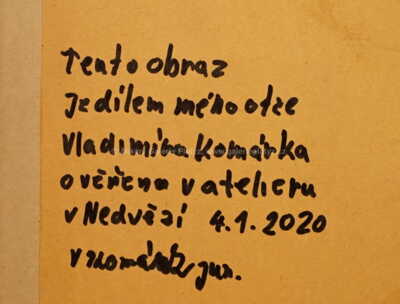 Tento obraz
je dílem mého otce
Vladimíra Komárka
ověřeno v atelieru
v Nedvězí 4.1.2020
V Komárek jun.